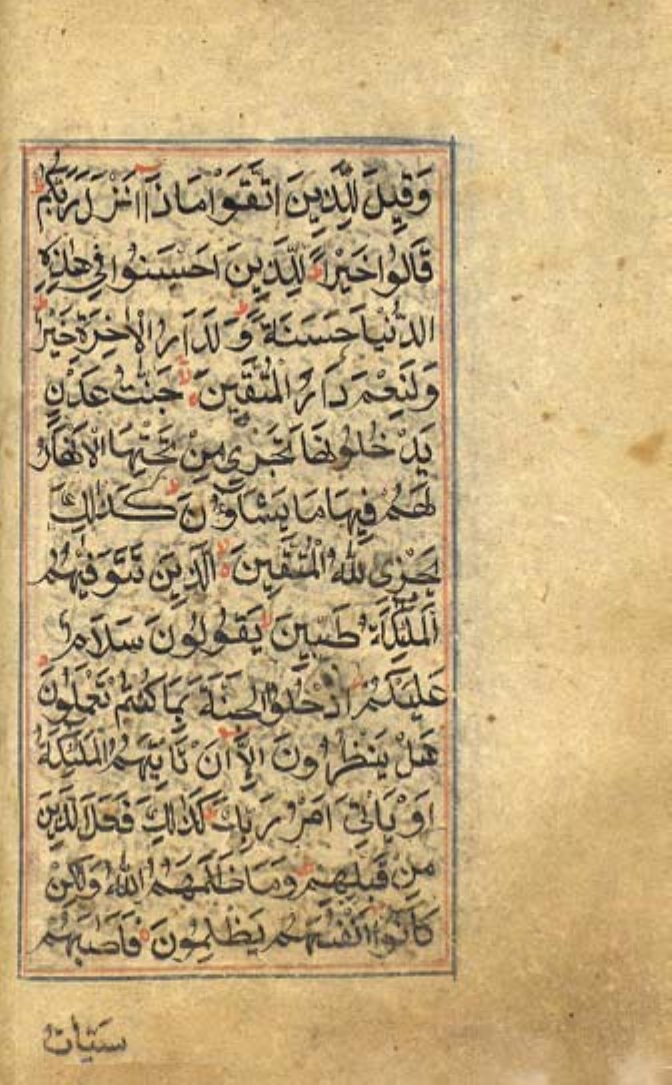 وَقِيلَ لِلَّذِينَ اتَّقَوْا مَاذَا أَنْزَلَ رَبُّكُمْ
قَالُوا خَيْرًا لِلَّذِينَ اَحْسَنُوا فِي هٰذِهِ
الدُّنْيَا حَسَنَةٌ وَلَدَارُ الْاٰخِرَةِ خَيْرٌ
وَلَنِعْمَ دَارُ الْمُتَّقِينَ جَنّٰتُ عَدْنٍ
يَدْخُلُونَهَا تَجْرِي مِنْ تَحْتِهَا الْاَنْهَارُ
لَهُمْ فِيهَا مَا يَشَاؤُنَ كَذٰلِكَ
يَجْزِي اللّٰهُ الْمُتَّقِينَ الَّذِينَ تَتَوَفّٰيهُمُ
الْمَلٰئِكَةُ طَيِّبِينَ يَقُولُونَ سَلَامٌ
عَلَيْكُمْ ادْخُلُوا الْجَنَّةَ بِمَا كُنْتُمْ تَعْمَلُونَ
هَلْ يَنْظُرُونَ اِلَّا اَنْ تَاْتِيَهُمُ الْمَلٰئِكَةُ
اَوْ يَاْتِيَ اَمْرُ رَبِّكَ كَذٰلِكَ فَعَلَ الَّذِينَ
مِنْ قَبْلِهِمْ وَمَا ظَلَمَهُمُ اللّٰهُ وَلٰكِنْ
كَانُوا اَنْفُسَهُمْ يَظْلِمُونَ فَاَصَابَهُمْ
سَيِّاٰتُ